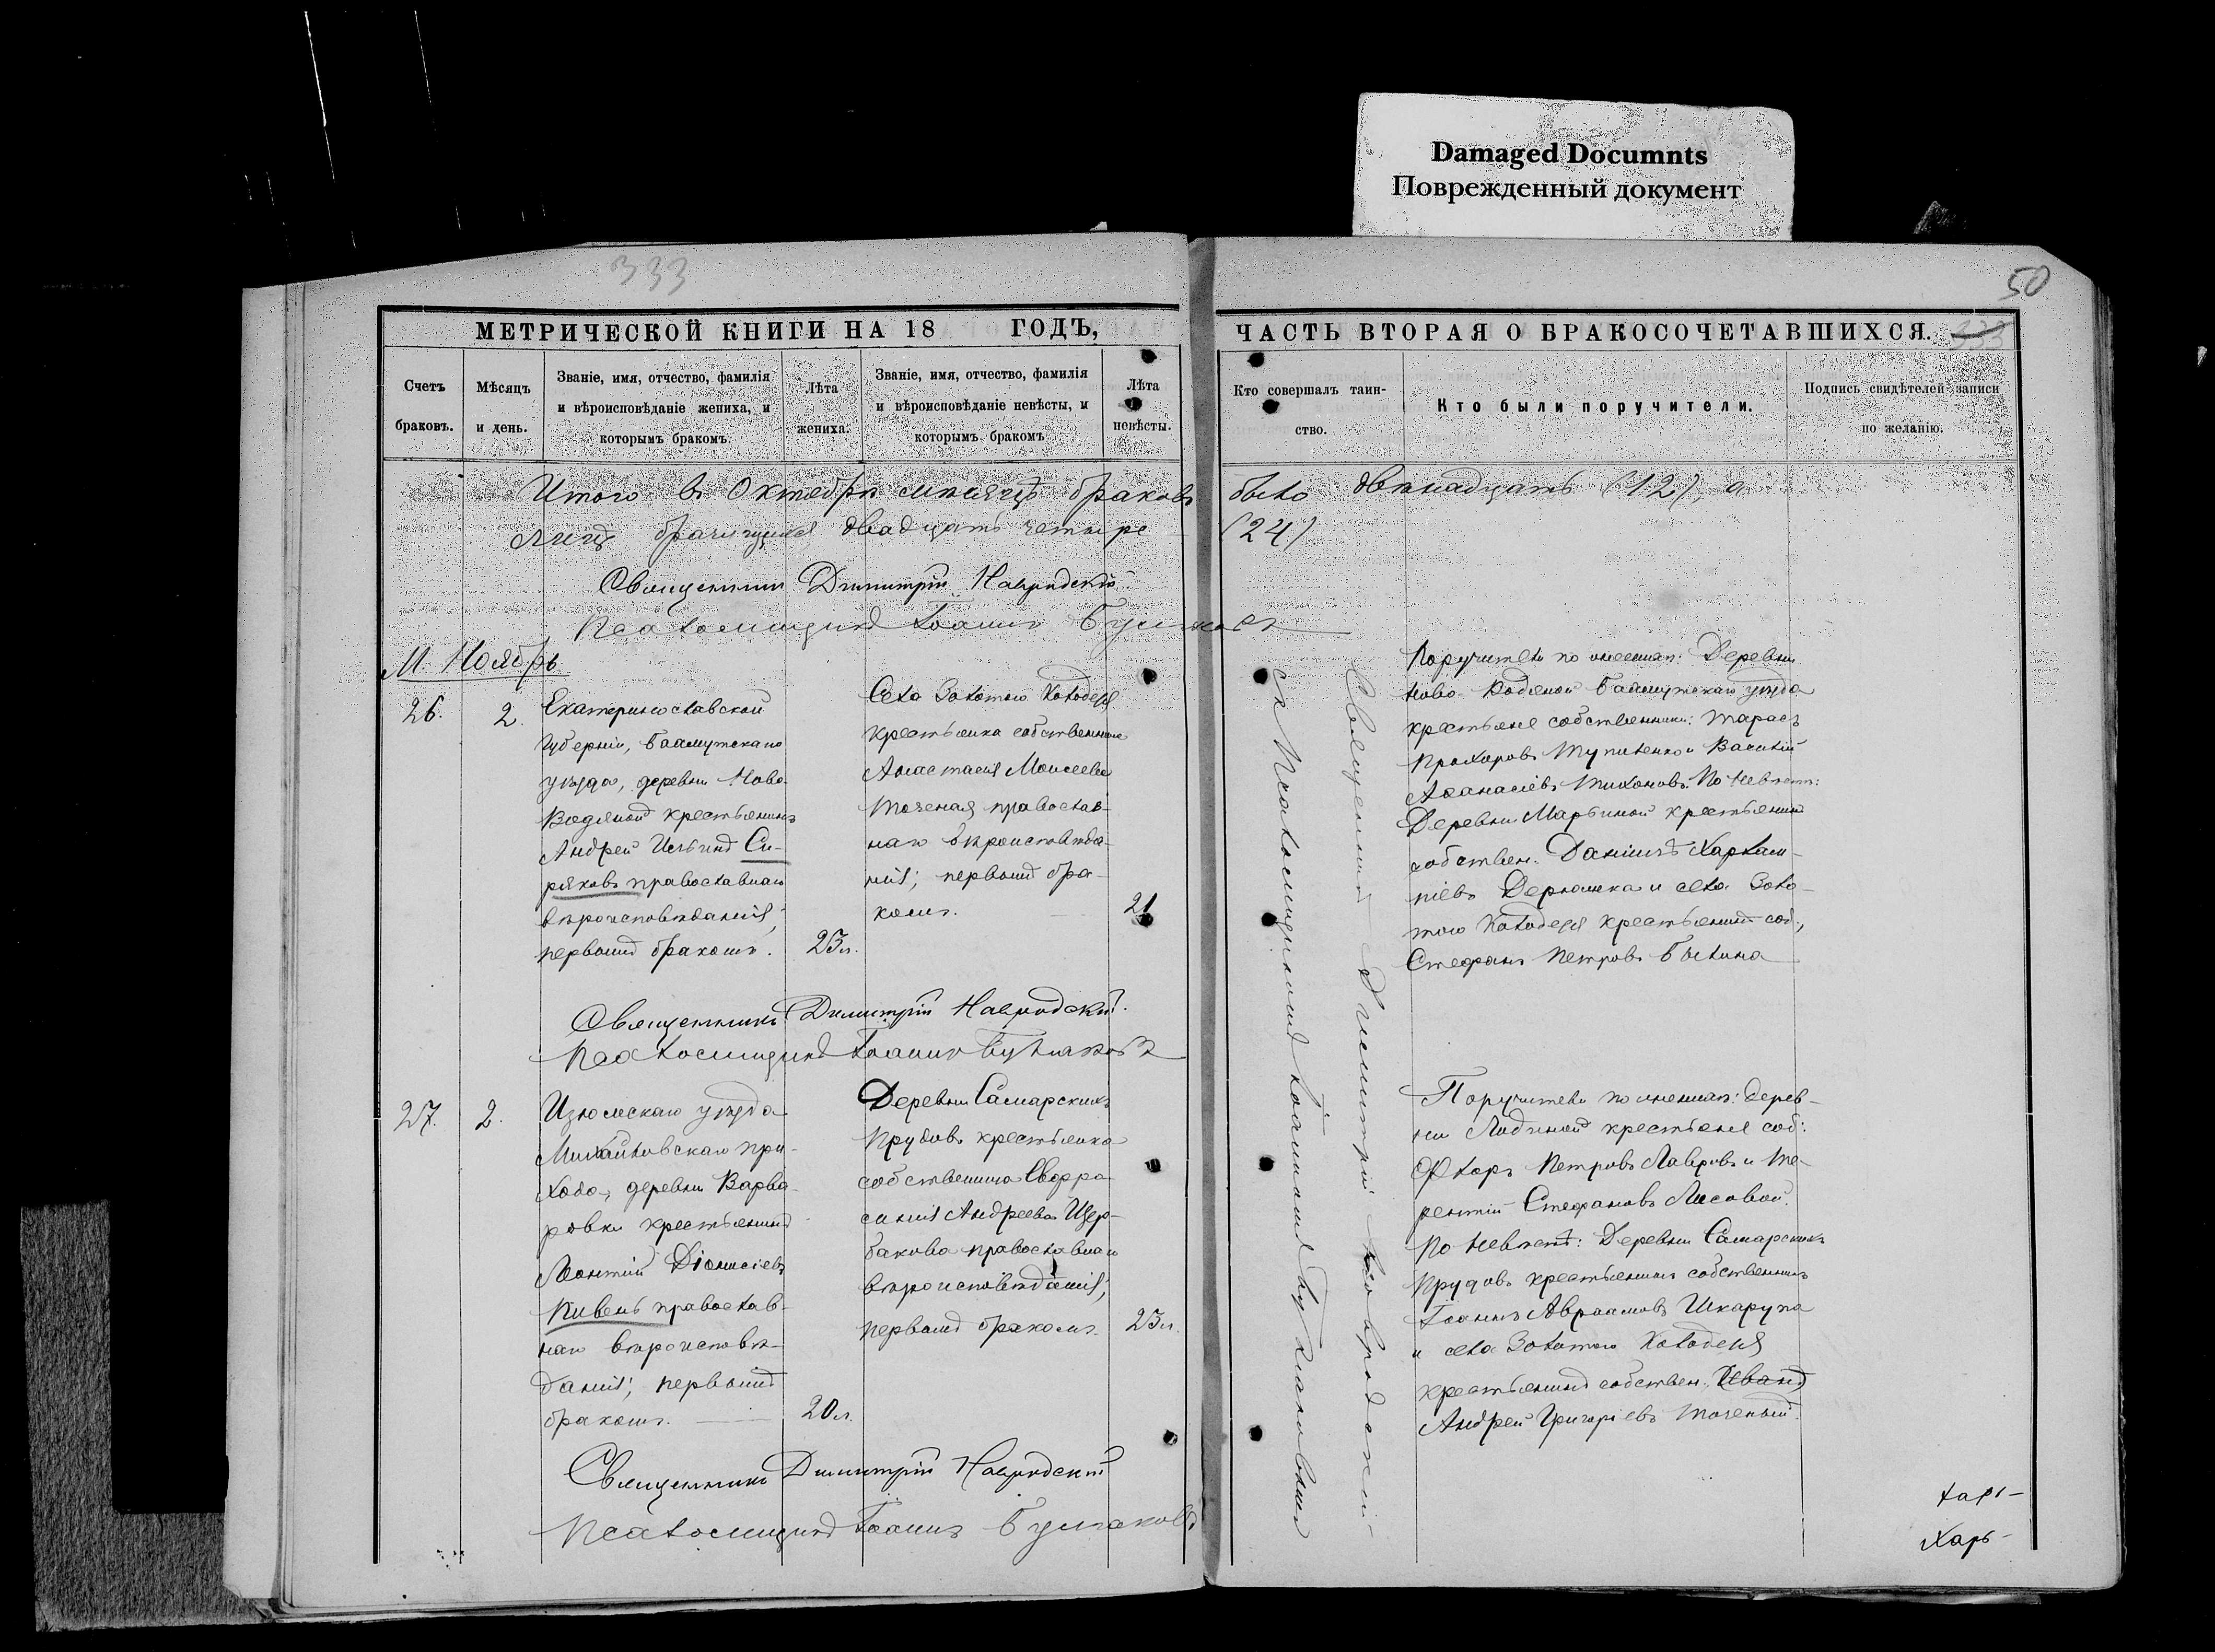 Damaged Documnts
Поврежденный документ
333
50
МЕТРИЧЕСКОЙ КНИГИ НА 18 ГОДЪ,
ЧАСТЬ ВТОРАЯ О БРАКОСОЧЕТАВШИХСЯ. 333
Счетъ
браковъ.
Мѣсяцъ
и день.
Званіе, имя, отчество, фамилія
и вѣроисповѣданіе жениха, и
которымъ бракомъ.
Лѣта
жениха.
Званіе, имя, отчество, фамилія
и вѣроисповѣданіе невѣсты, и
которымъ бракомъ
Лѣта
невѣсты.
Кто совершалъ таин-
ство.
Кто были поручители.
Подпись свидѣтелей записи
по желанію.
Итого въ Октябрѣ мѣсяцѣ браковъ было двѣнадцать (12), а
лицъ двадцать четыре (24)
Священникъ Димитрій Навродскій.
Псаломщикъ Іоаннъ
М. Ноябрь
26.
2.
Екатеринославской
губерніи, Бахмутскаго
уѣзда, деревни Ново-
Водяной крестьянинъ
Андрей Ильинъ Си-
ряковъ православнаго
вѣроисповѣданія;
первымъ бракомъ.
23 л.
Села Золотого Колодезя
крестьянка собственника
Анастасія Моисеева
Точеная православ-
наго вѣроисповѣда-
нія; первымъ бра-
комъ.
21
Священникъ Димитрій Навродскій.
Псаломщикъ Іоаннъ
Поручители по женихѣ: Деревни
Ново-Водяной Бахмутскаго уѣзда
крестьяне собственники: Тарасъ
Прохоровъ и Василій
Афанасіевъ Тихоновъ. По невѣстѣ:
Деревни Марьиной крестьянинъ
собствен. Даніилъ Харлам-
піевъ и села Золо-
того Колодезя крестьянинъ соб.,
Стефанъ Петровъ Былина
27.
2.
Изюмскаго уѣзда
Михайловскаго при-
хода, деревни Варва-
ровки крестьянинъ
Леонтій Діонисіевъ
Пивень православ-
наго вѣроисповѣ-
данія; первымъ
бракомъ.
20 л.
Деревни Самарскихъ
Прудовъ крестьянка
собственница Евфро-
синія Андреева Щер-
бакова православнаго
вѣроисповѣданія;
первымъ бракомъ.
23 л.
Священникъ Димитрій Навродскій
Псаломщикъ Іоаннъ
Поручители по женихѣ: дерев-
ни крестьяне соб:
Флоръ Петровъ Лавровъ и Те-
рентій Стефановъ Лисовой.
По невѣстѣ: Деревни Самарскихъ
Прудовъ крестьянинъ собственникъ
Іоаннъ Авраамовъ Шкарупа
и села Золотого Колодезя
крестьянинъ собствен. Иванъ
Андрей Григоріевъ Точеный.
Священникъ Димитрій Навродскій
съ Псаломщикомъ Іоанномъ
Харь-